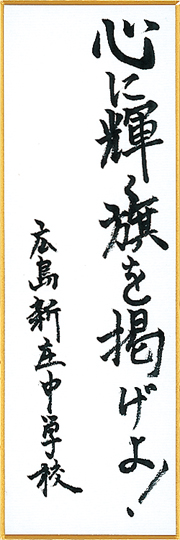 心に輝く旗を掲げよ!
広島新庄中学校